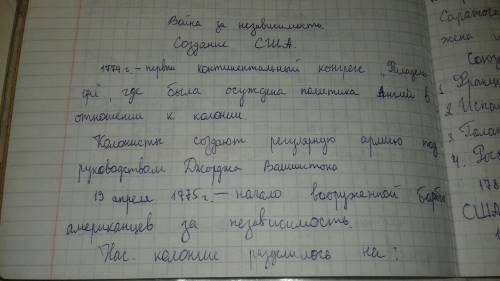 Война за независимость
Создание США.
1774 г. – первый континентальный конгресс "Филадель
фи", где была осуждена политика Англии в
отношении к колонии.
Колонисты создают регулярную армию под
руководством Джорджа Вашингтона
19 апреля 1775 г. – начало вооруженной борьбы
американцев за независимость.
Нас. колоние разделилось на:
Саратога
жена и
Союз
1 Франц
2 Испа
3 Голан
4. Рос
178
США